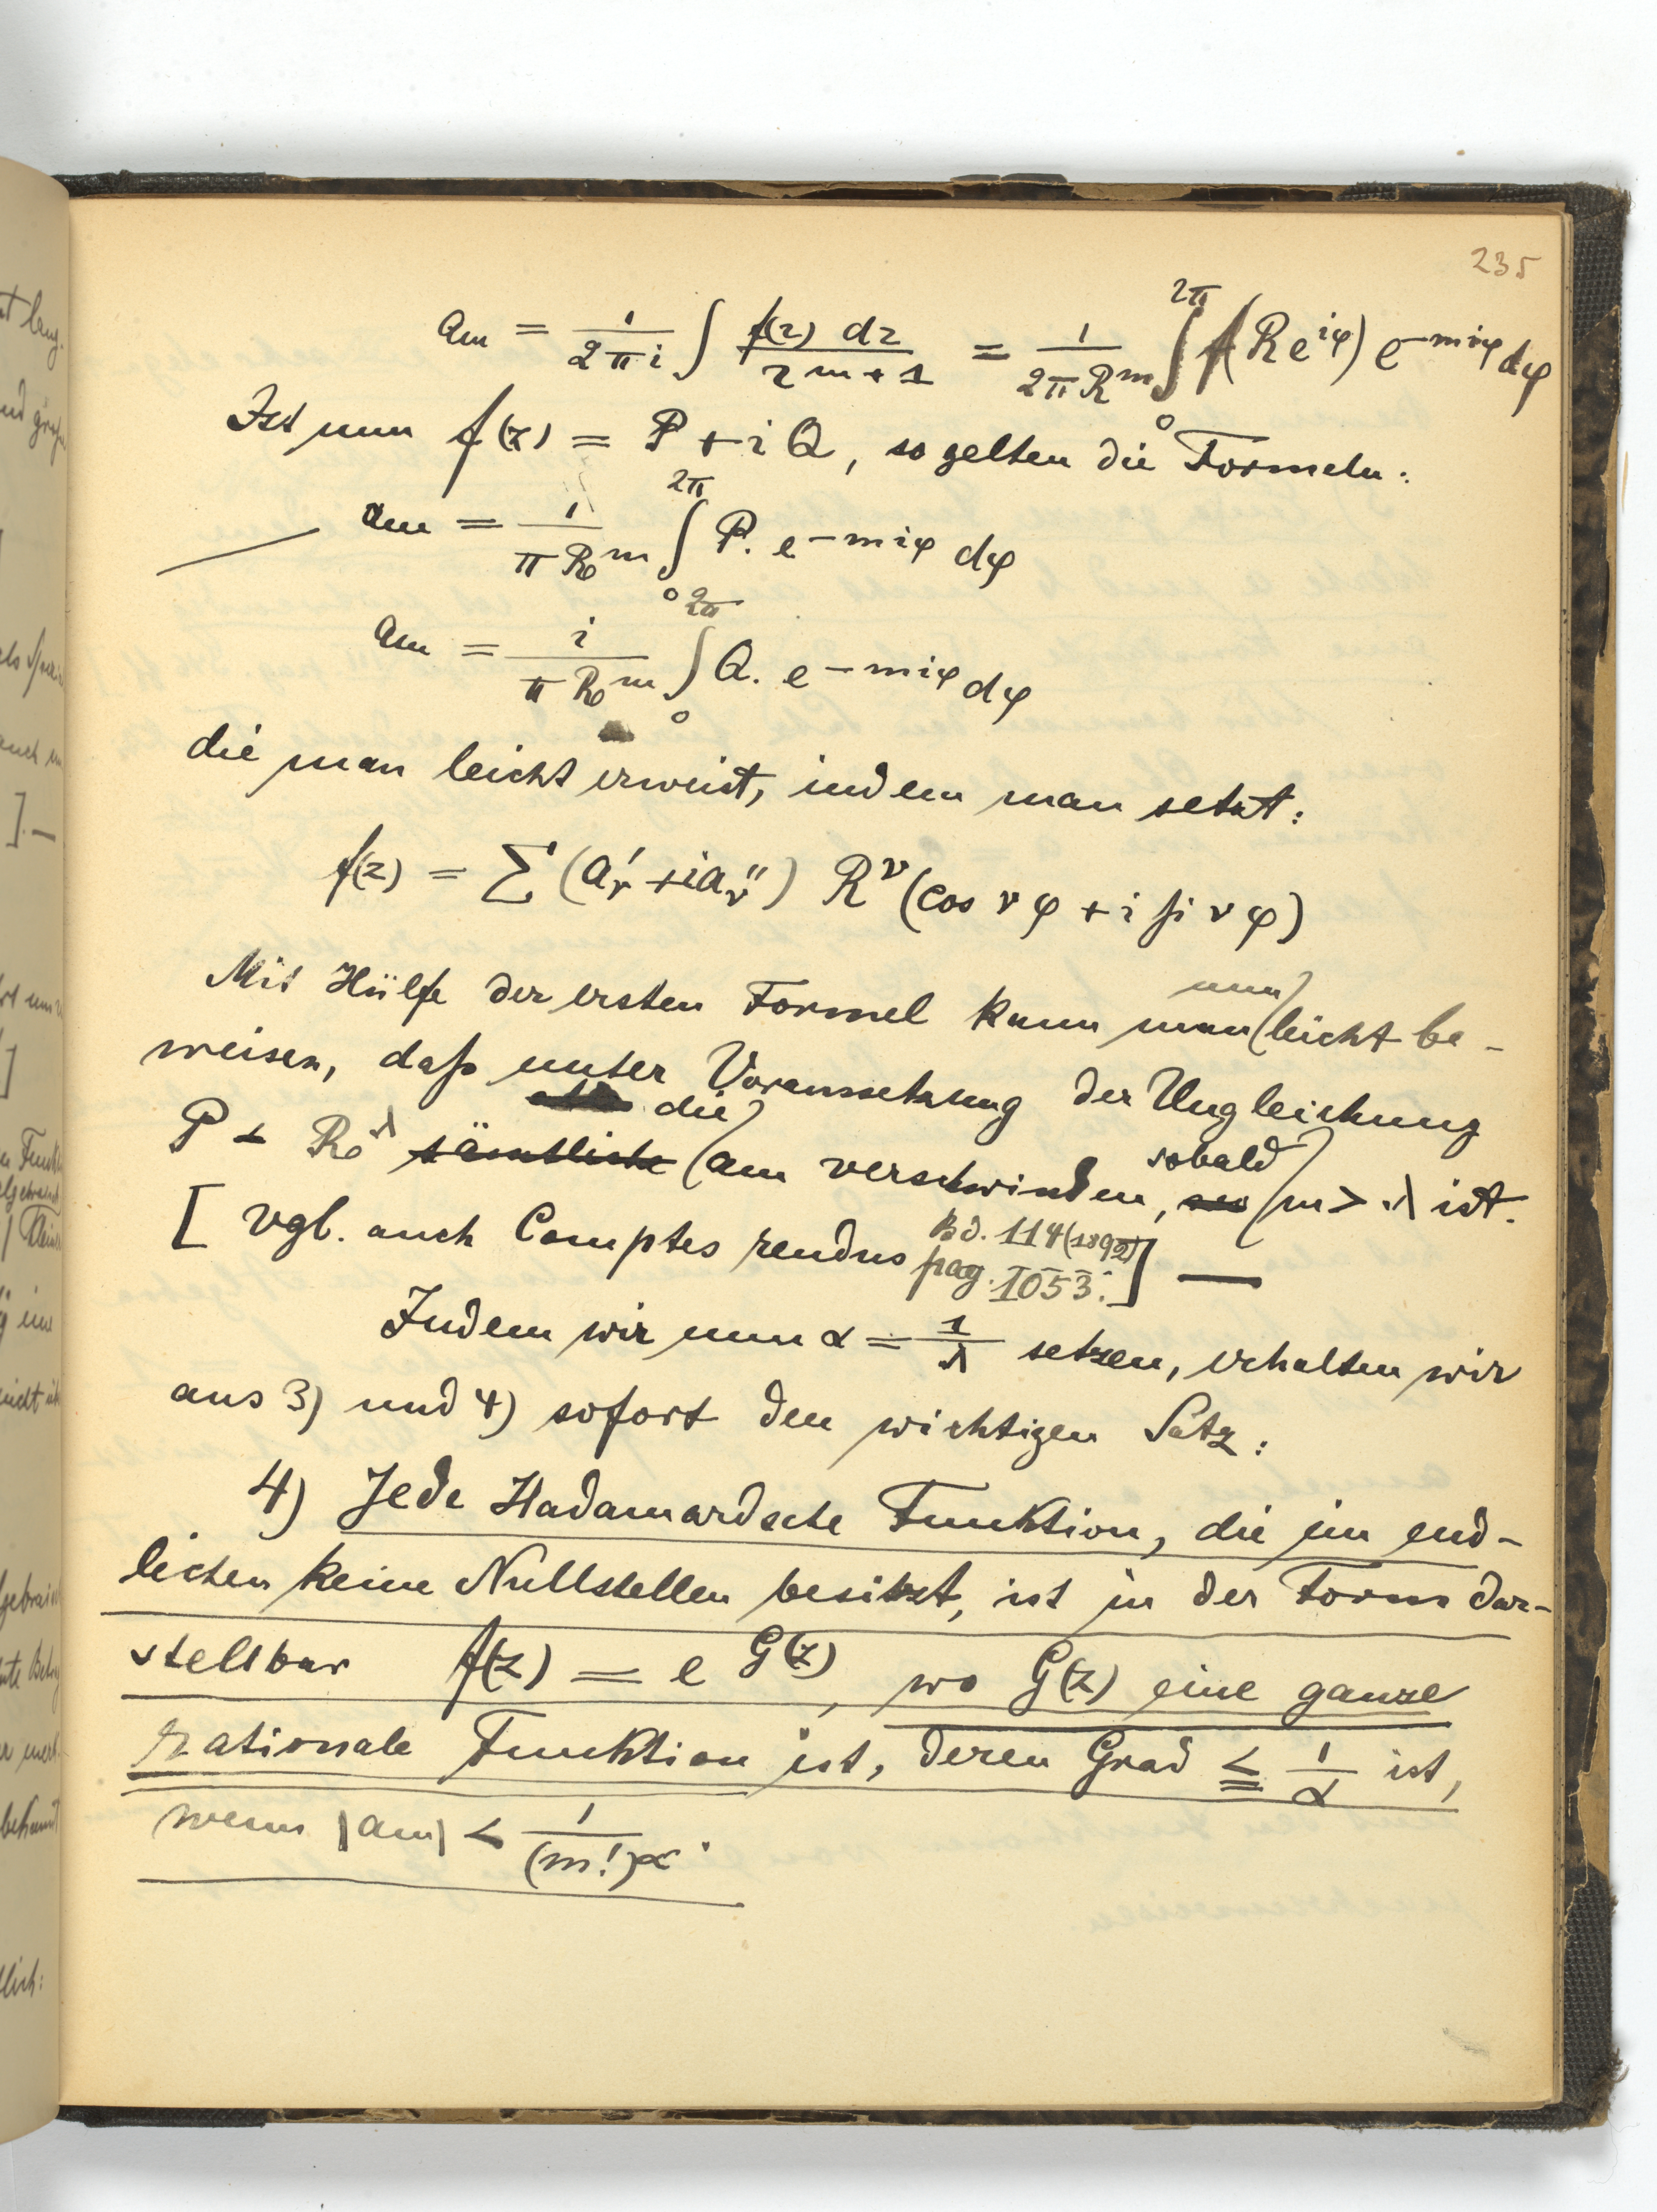 235
a_m = 1/(2πi) ∫ f(z) dz / z^{m+1} = 1/(2πR^m) ∫_0^{2π} f(Re^{iφ}) e^{-miφ} dφ
Ist nun f(z) = P + iQ, so gelten die Formeln:
a_m = 1/(πR^m) ∫_0^{2π} P. e^{-miφ} dφ
a_m = i/(πR^m) ∫_0^{2π} Q. e^{-miφ} dφ
die man leicht erweist, indem man setzt:
f(z) = Σ (a'_ν + ia''_ν) R^ν (cos νφ + i si νφ)
Mit Hülfe der ersten Formel kann man nun leicht be-
weisen, daß unter Voraussetzung der Ungleichung
P < R^λ sämtliche die a_m verschwinden, sobald m > λ ist.
[vgl. auch Comptes rendus Bd. 114 (1892)
pag. 1053.] —
Indem wir nun α = 1/λ setzen, erhalten wir
aus 3) und 4) sofort den wichtigen Satz:
4) Jede Hadamardsche Funktion, die im end-
lichen keine Nullstellen besitzt, ist in der Form dar-
stellbar f(z) = e^{G(z)}, wo G(z) eine ganze
rationale Funktion ist, deren Grad ≦ 1/α ist,
wenn |a_m| < 1/(m!)^α.